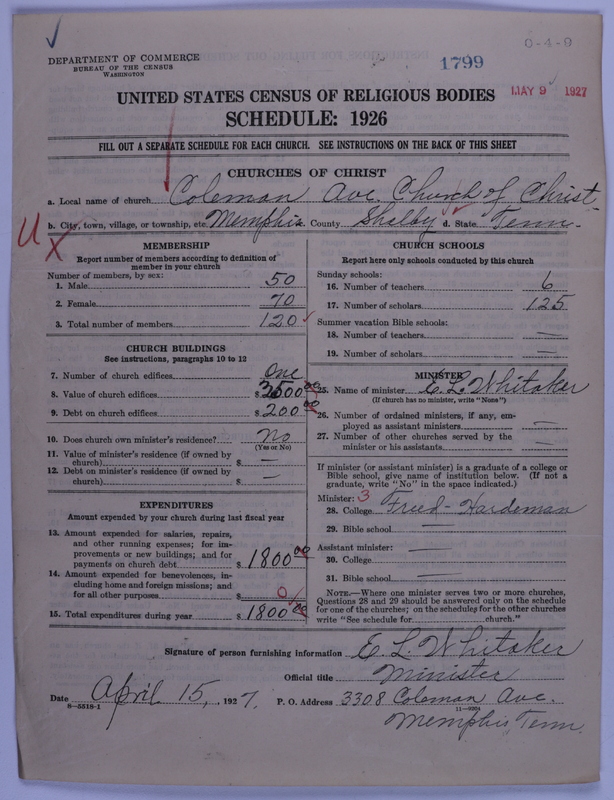 0-4-0
DEPARTMENT OF COMMERCE
BUREAU OF THE CENSUS
WASHINGTON
1799
MAY 9 1927
UNITED STATES CENSUS OF RELIGIOUS BODIES
SCHEDULE: 1926
FILL OUT A SEPARATE SCHEDULE FOR EACH CHURCH. SEE INSTRUCTIONS ON THE BACK OF THIS SHEET
CHURCHES OF CHRIST
a. Local name of church Coleman Ave. Church of Christ
b. City, town, village, or township, etc. Memphis County Shelby d. State Tenn.
MEMBERSHIP
Report number of members according to definition of
member in your church
Number of members, by sex:
1. Male 50
2. Female 70
3. Total number of members 120
CHURCH BUILDINGS
See instructions, paragraphs 10 to 12
7. Number of church edifices One
8. Value of church edifices $ 3500 00
9. Debt on church edifices $ 200 00
10. Does church own minister's residence? No
(Yes or No)
11. Value of minister's residence (if owned by
church) $ —
12. Debt on minister's residence (if owned by
church) $ —
EXPENDITURES
Amount expended by your church during last fiscal year
13. Amount expended for salaries, repairs,
and other running expenses; for im-
provements or new buildings; and for
payments on church debt $ 1800 00
14. Amount expended for benevolences, in-
cluding home and foreign missions; and
for all other purposes $ 0
15. Total expenditures during year $ 1800 00
CHURCH SCHOOLS
Report here only schools conducted by this church
Sunday schools:
16. Number of teachers 6
17. Number of scholars 125
Summer vacation Bible schools:
18. Number of teachers —
19. Number of scholars —
MINISTER
25. Name of minister E. L. Whitaker
(If church has no minister, write "None")
26. Number of ordained ministers, if any, em-
ployed as assistant ministers —
27. Number of other churches served by the
minister or his assistants —
If minister (or assistant minister) is a graduate of a college or
Bible school, give name of institution below. (If not a
graduate, write "No" in the space indicated.)
Minister: 3
28. College Freed-Hardeman
29. Bible school —
Assistant minister: —
30. College —
31. Bible school —
NOTE.—Where one minister serves two or more churches,
Questions 28 and 29 should be answered only on the schedule
for one of the churches; on the schedules for the other churches
write "See schedule for church."
Signature of person furnishing information E. L. Whitaker
Official title Minister
Date April 15, 1927. P. O. Address 3308 Coleman Ave.
8—5518-1
Memphis, Tenn.